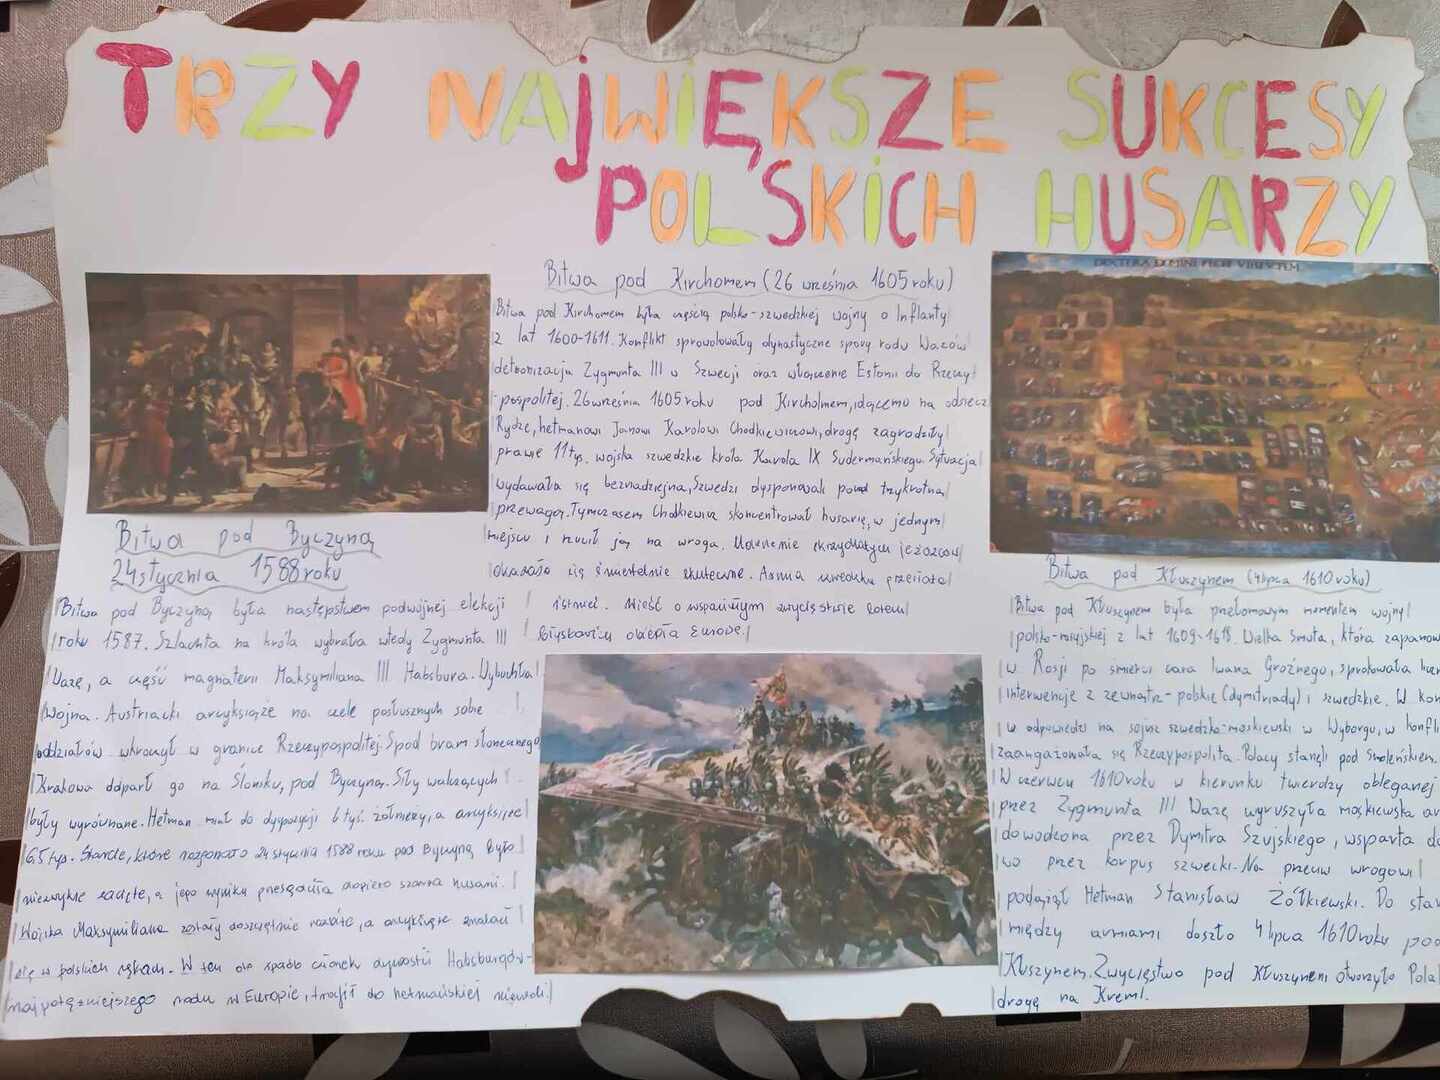 TRZY NAJWIĘKSZE SUKCESY
POLSKICH HUSARZY
Bitwa pod Byczyną
24 stycznia 1588 roku
Bitwa pod Byczyną była następstwem podwójnej elekcji
roku 1587. Szlachta na króla wybrała wtedy Zygmunta III
Wazę, a część magnaterii Maksymiliana III Habsburga. Wybuchła
wojna. Austriacki arcyksiąże na czele posłusznych sobie
oddziałów wkroczył w granice Rzeczypospolitej. Spod bram słonecznego
Krakowa odparł go na Śląsk, pod Byczyną. Siły walczących
były wyrównane. Hetman miał do dyspozycji 6 tyś. żołnierzy, a arcyksięc
6,5 tys. Starcie, które rozpoczęto 24 stycznia 1588 roku pod Byczyną było
niezwykle zacięte, a jego wyniku przesądziła dopiero szarża husarii.
Wojska Maksymiliana zostały doszczętnie rozbite, a arcyksiąże znalazł
się w polskich rękach. W ten oto sposób członek dynastii Habsburgów-
najpotężniejszego rodu w Europie, trafił do hetmańskiej niewoli.
Bitwa pod Kirchomem (26 września 1605 roku)
Bitwa pod Kirchomem była częścią polsko-szwedzkiej wojny o Inflanty
z lat 1600-1611. Konflikt sprowokowały dynastyczne spory rodu Wazów
detronizacja Zygmunta III w Szwecji oraz włączenie Estonii do Rzeczy
-pospolitej. 26 września 1605 roku pod Kircholmem, idącemu na odsiecz
Rydze, hetmanowi Janowi Karolowi Chodkiewiczowi, drogę zagrodziły
prawie 11 tys. wojska szwedzkie króla Karola IX Sudermańskiego. Sytuacja
wydawała się beznadziejna, Szwedzi dysponowali ponad trzykrotną
przewagą. Tymczasem Chodkiewicz skoncentrował husarię w jednym
miejscu i rzucił ją na wroga. Uderzenie skrzydlatych jeźdźców
okazało się śmiertelnie skuteczne. Armia szwedzka przestała
istnieć. Wieść o wspaniałym zwycięstwie lotem
błyskawicy obiegła Europę.
DEXTERA DOMINI FECIT VIRTUTEM
Bitwa pod Kłuszynem (4 lipca 1610 roku)
Bitwa pod Kłuszynem była przełomowym momentem wojny
polsko-rosyjskiej z lat 1609-1618. Wielka Smuta, która zapanow
w Rosji po śmierci cara Iwana Groźnego, sprokowała
interwencje z zewnątrz - polskie (dymitriady) i szwedzkie. W
w odpowiedzi na sojusz szwedzko-moskiewski w Wyborgu, w konfli
zaangażowała się Rzeczpospolita. Polacy stanęli pod Smoleńskiem.
W czerwcu 1610 roku w kierunku twierdzy obleganej
przez Zygmunta III Wazę wyruszyła moskiewska ar
dowodzona przez Dymitra Szujskiego, wsparta do
wo przez korpus szwecki. Na przeciw wrogowi
podążył Hetman Stanisław Żółkiewski. Do star
między armiami doszło 4 lipca 1610 roku pod
Kłuszynem. Zwycięstwo pod Kłuszynem otworzyło Pola
drogę na Kreml.